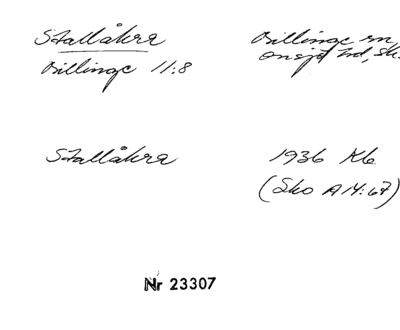 Stallåkra
Billinge sn,
Billinge 11:8
Onsjö hd, Sk.
Stallåkra
1936 Kb
(Sko A 14:67)
Nr 23307